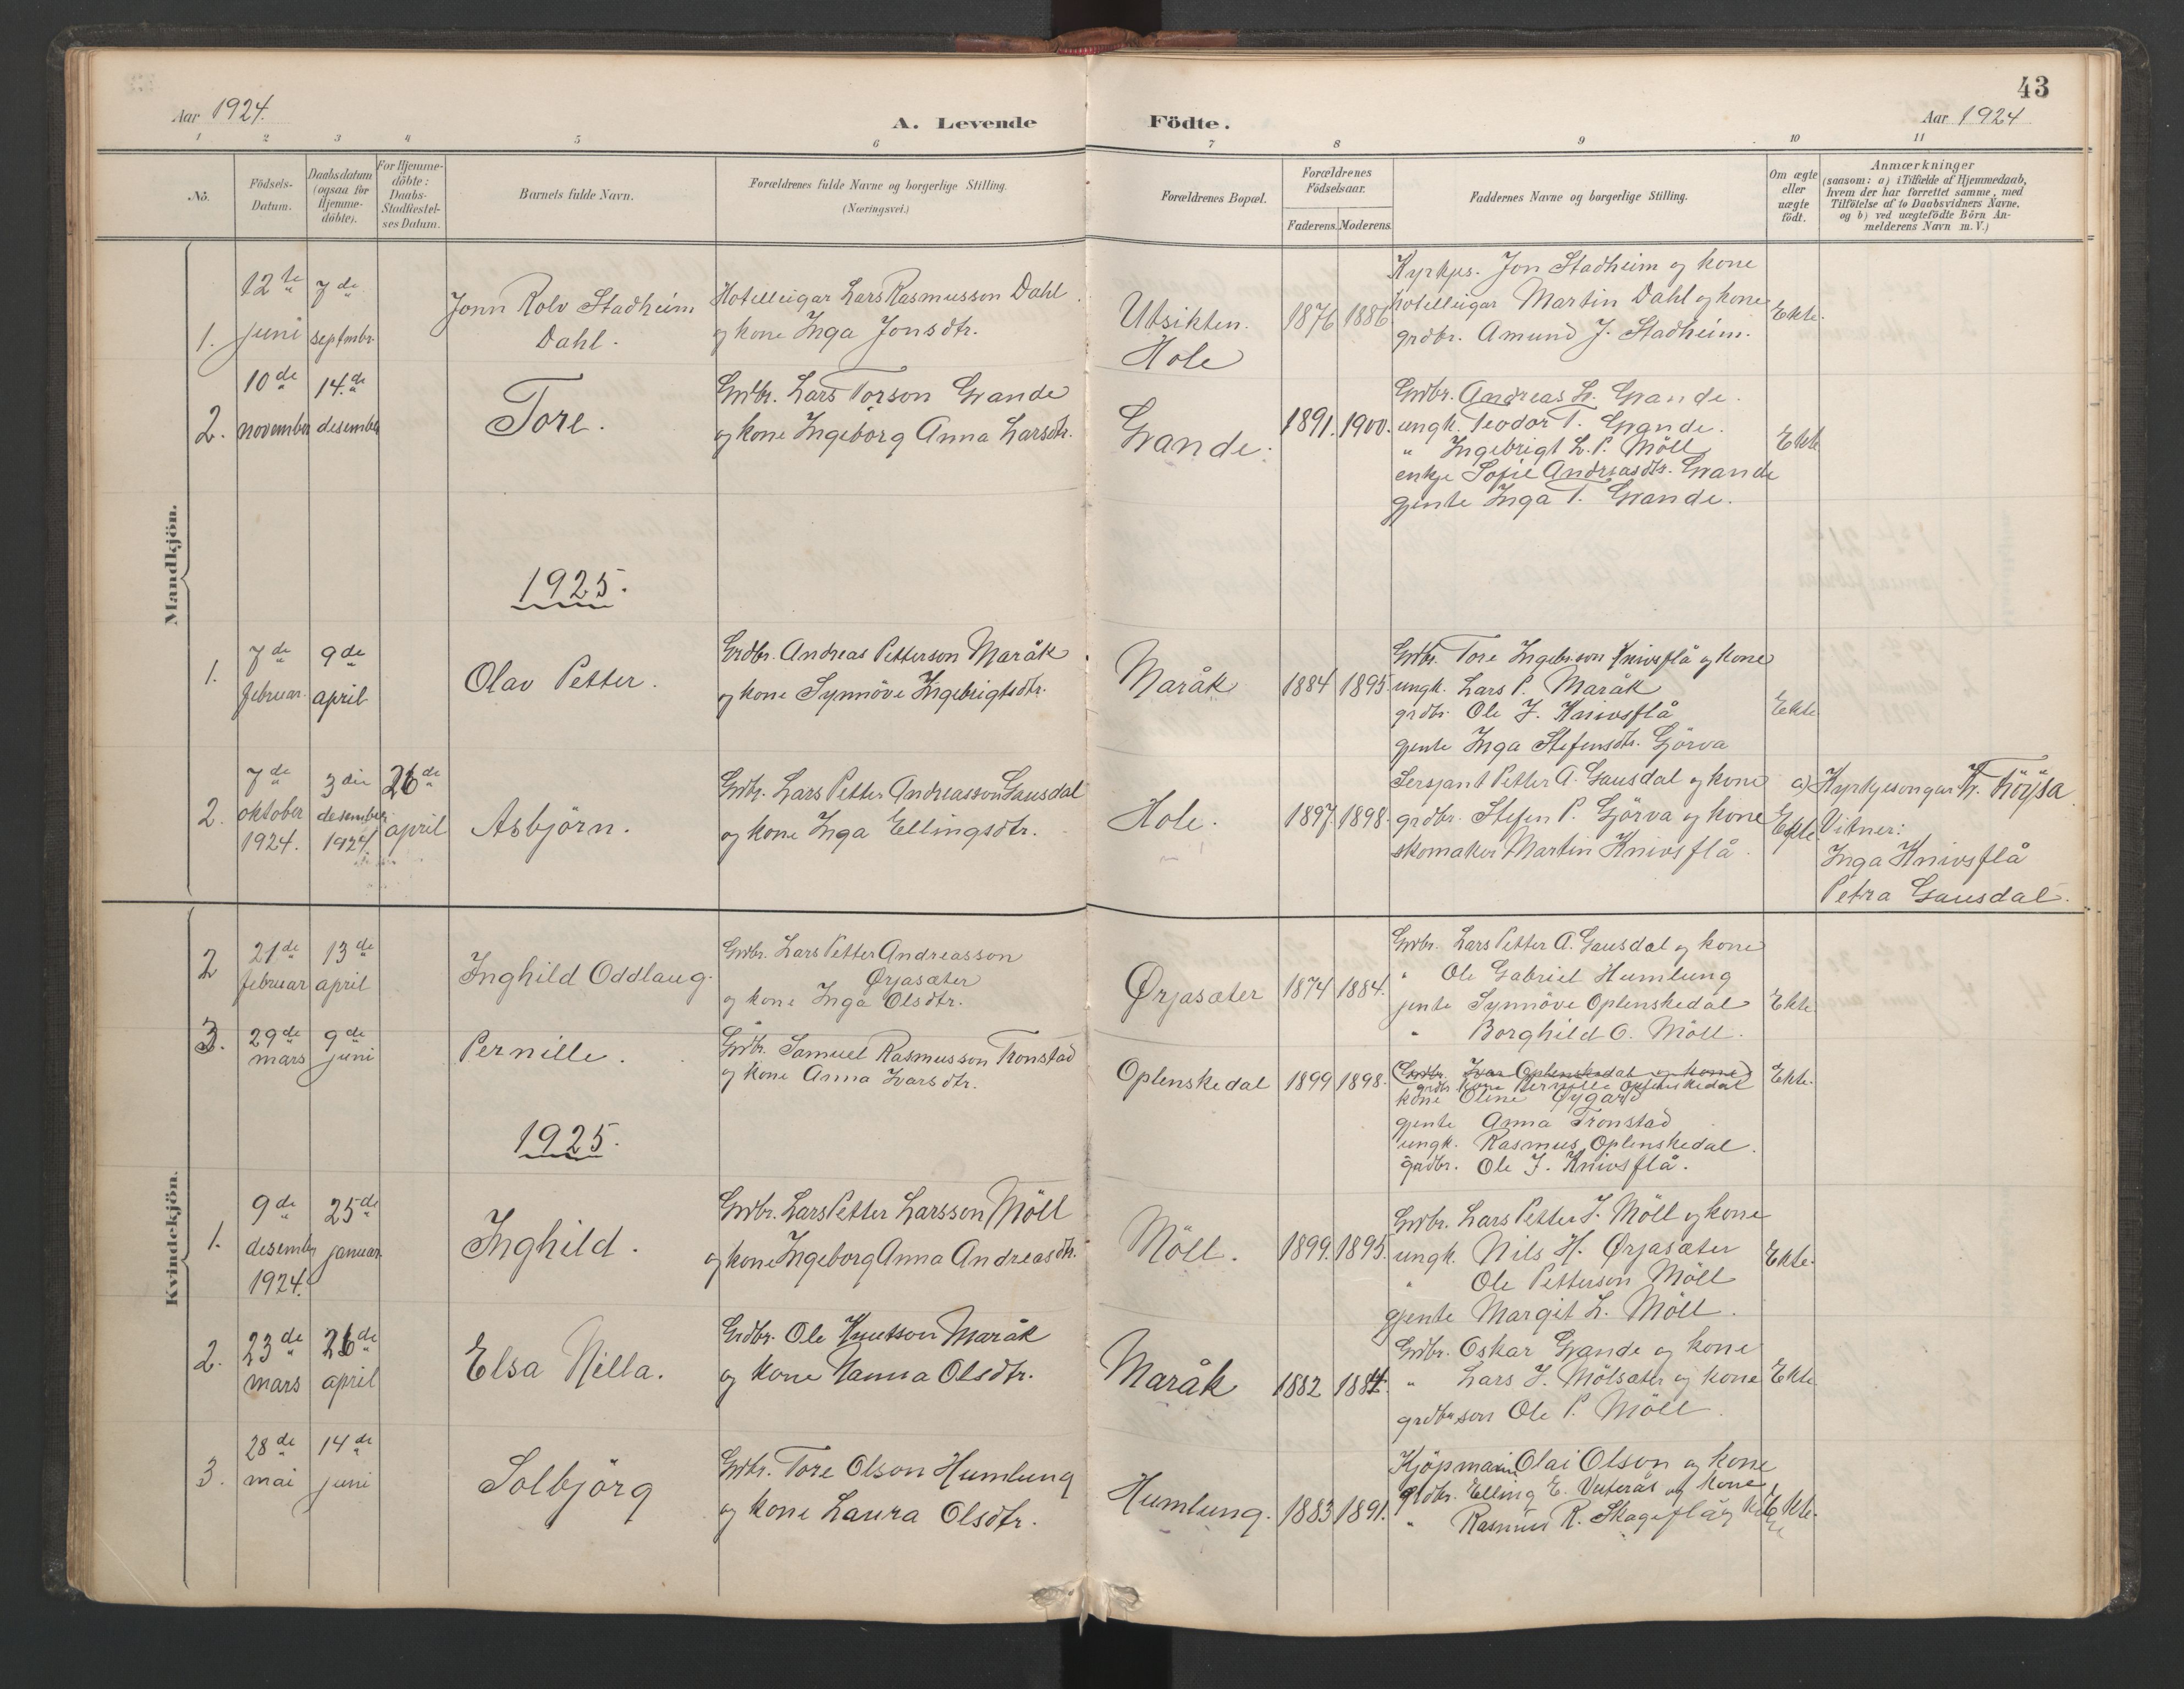 43
Aar 1924.
A. Levende Födte.
Aar 1924
1 2 3 4 5 6 7 8 9 10 11
No.
Födsels-Datum.
Daabsdatum (ogsaa for Hjemme-döbte).
For Hjemme-döbte: Daabs-Stadfæstel-ses Datum.
Barnets fulde Navn.
Forældrenes fulde Navne og borgerlige Stilling.
(Næringsvei.)
Forældrenes Bopæl.
Forældrenes Födselsaar.
Faderens. Moderens.
Faddernes Navne og borgerlige Stilling.
Om ægte eller uægte födt.
Anmærkninger
(saasom: a) i Tilfælde af Hjemmedaab,
hvem der har forrettet samme, med
Tilföielse af to Daabsvidners Navne,
og b) ved uægtefödte Börn An-
melderens Navn m. V.)
Mandkjön.
1. 12te juni 7de septmbr.
Jonn Rolv Stadheim
Dahl.
Hotelleigar Lars Rasmusson Dahl
og kone Inga Jonsdtr.
Utsikten.
Hole
1876 1886
Kyrkjes. Jon Stadheim og kone
hotelleigar Martin Dahl og kone
grdbr. Amund J. Stadheim.
Ekte.
2. 10de november 14.de desember
Tore.
Grdbr. Lars Torson Grande
og kone Ingeborg Anna Larsdtr.
Grande.
1891. 1900.
Grdbr. Andreas L. Grande.
ungk. Teodor T. Grande.
" Ingebrigt L. P. Möll
enkje Sofie Andreasdtr. Grande
gjente Inga T. Grande.
Ekte
1925.
1. 7de februar. 9de april
Olav Petter.
Grdbr. Andreas Petterson Maråk
og kone Synnöve Ingebrigtsdtr.
Maråk
1884 1895.
Grdbr. Tore Ingebr.son Knivsflå og kone
ungk. Lars P. Maråk
grdbr. Ole J. Knivsflå
gjente Inga Stefensdtr. Gjörva
Ekte
2. 7de oktober 1924. 3die desember 1924. 26de april
Asbjörn.
Grdbr. Lars Petter Andreasson Gausdal
og kone Inga Ellingsdtr.
Hole.
1897. 1898.
Sersjant Petter A. Gausdal og kone
grdbr. Stefen P. Gjörva og kone
skomaker Martin Knivsflå.
Ekte.
a) Kyrkjesongar K.
Vitner:
Inga Knivsflå
Petra Gausdal.
Kvindekjön.
2 21de februar 13de april
Inghild Oddlaug.
Grdbr. Lars Petter Andreasson
Ørjasæter
og kone Inga Olsdtr.
Ørjasæter
1874 1884.
Grdbr. Lars Petter A. Gausdal og kone
" Ole Gabriel Humlung
jente Synnöve Oplenskedal
" Borghild O. Möll.
Ekte
3. 29de mars 9de juni
Pernille.
Grdbr. Samuel Rasmusson Tronstad
og kone Anna Ivarsdtr.
Oplenskedal
1899 1898.
Grdbr. Ivar Oplenskedal og kone
grdbr. kone Pernille Oplenskedal
kone Oline Øygard
gjente Anna Tronstad
ungk. Rasmus Oplenskedal.
gardbr. Ole J. Knivsflå.
Ekte.
1925.
1. 9de desembr 1924. 25de januar.
Inghild.
Grdbr. Lars Petter Larsson Möll
og kone Ingeborg Anna Andreasdtr.
Möll.
1899. 1895.
Grdbr. Lars Petter J. Möll og kone
ungk. Nils H. Ørjasæter
" Ole Petterson Möll
gjente Margit L. Möll.
Ekte.
2. 23de mars 26de april
Elsa Nilla.
Grdbr. Ole Knutson Maråk
og kone Nanna Olsdtr.
Maråk
1882 1884.
Grdbr. Oskar Grande og kone
" Lars J. Mölsæter og kone
grdbr.son Ole P. Möll.
Ekte.
3. 28de mai 14de juni
Solbjörg
Grdbr. Tore Olson Humlung
og kone Laura Olsdtr.
Humlung.
1883 1891.
Kjöpmann Olai Olson og kone
grdbr. Elling E. Vesterås og kone
" Rasmus R. Skageflå og kone
Ekte.